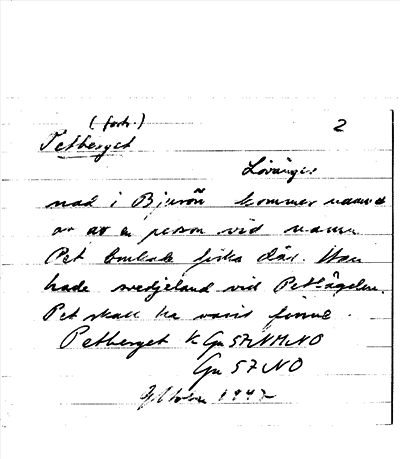 (forts.) 2
Petberget
Lövånger
nad i Bjurön kommer namnet
av av en person vid namn
Pet brukade fiska där. Han
hade svedjeland vid Petlågden.
Pet skall ha varit finne.
Petberget k Gn 57 NMNO
Gn 57 NO
1947